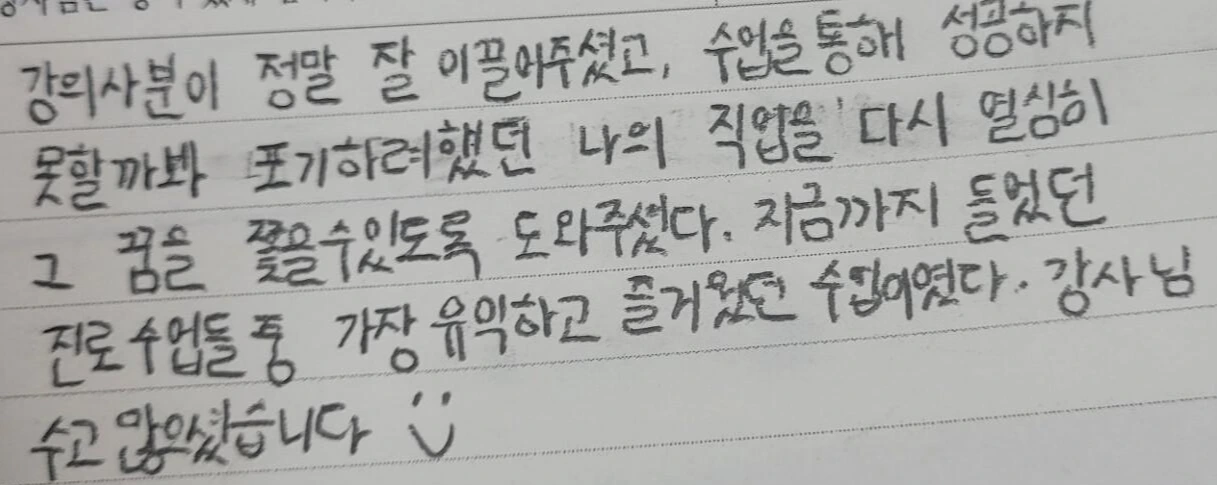 강의사분이 정말 잘 이끌어주셨고, 수업을통해 성공하지
못할까봐 포기하려했던 나의 직업을 다시 열심히
그 꿈을 쫓을수있도록 도와주셨다. 지금까지 들었던
진로수업들중 가장 유익하고 즐거웠던 수업이였다. 강사님
수고많으셨습니다 :)